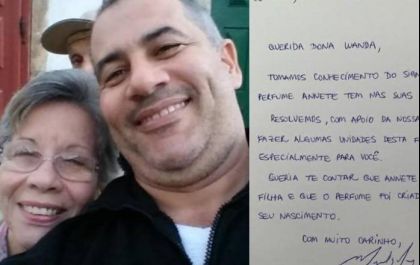 QUERIDA DONA WANDA,
TOMAMOS CONHECIMENTO DO
PERFUME ANNETE TEM NAS SUAS
RESOLVEMOS, COM APOIO DA NOSSA
FAZER ALGUMAS UNIDADES DESTA
ESPECIALMENTE PARA VOCÊ.
QUERIA TE CONTAR QUE ANNETE
FILHA E QUE O PERFUME FOI
SEU NASCIMENTO.
COM MUITO CARINHO,